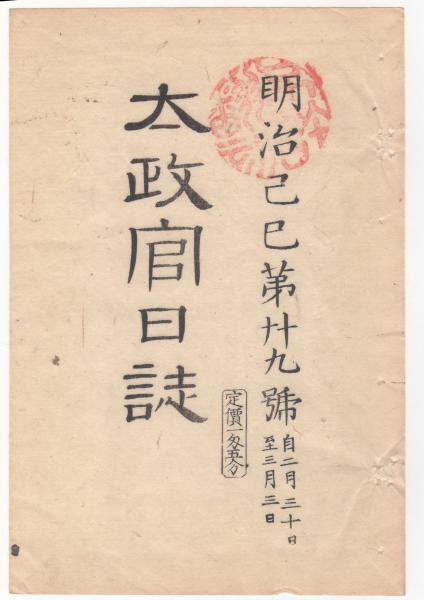 明治己巳第廿九號
自二月三十日
至三月三日
定價一匁五分
太政官日誌